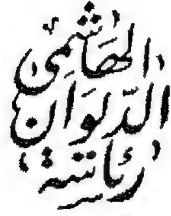 الهَاشمِى
الدّيوَان
رئاسَة